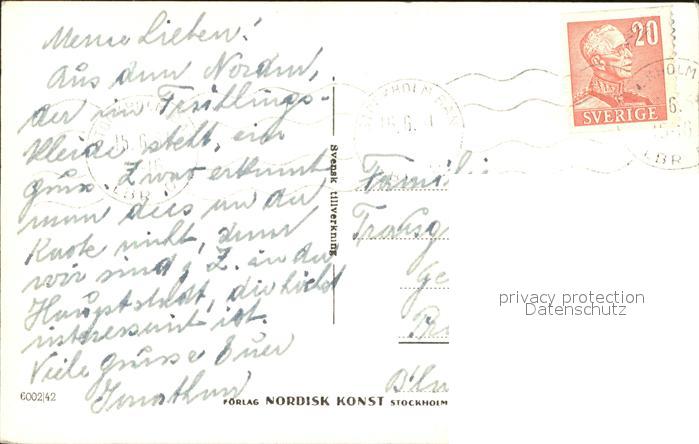 Meine Lieben!
Aus dem Norden,
der im Frühlings-
kleide steht, ein
gruss. Zwar erkennt
man dies an der
Karte nicht, denn
wir sind z. Z. in der
Hauptstadt, die höchst
interessant ist.
Viele grüsse Euer
Jonathan
6002/42
Svensk tillverkning
FÖRLAG NORDISK KONST STOCKHOLM
20
SVERIGE
15.6.
LBR
Famili
privacy protection
Datenschutz